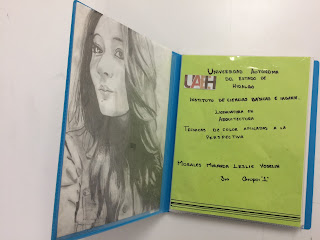 Universidad Autónoma
del Estado de
Hidalgo
UAEH
Instituto de ciencias básicas e ingeni.
Licenciatura en
Arquitectura
Técnicas de color aplicadas a la
Perspectiva
Morales Miranda Leslie
3ro Grupo: "1"